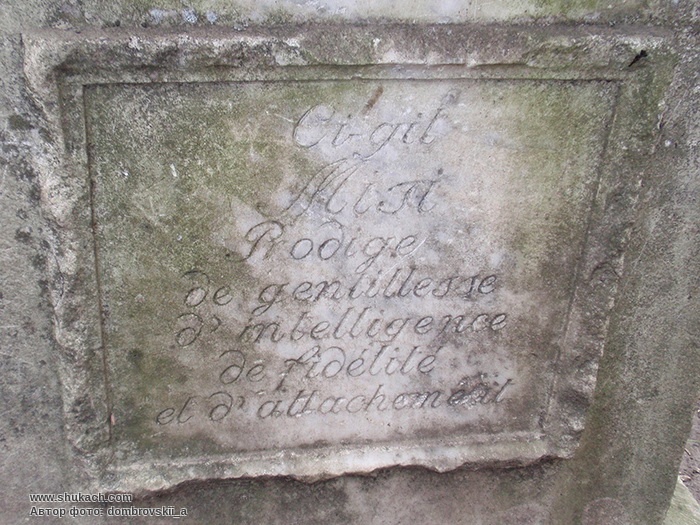 Ci-gît
Mifi
Prodige
de gentillesse
d'intelligence
de fidélité
et d'attachement
www.shukach.com
Автор фото: dombrovskii_a